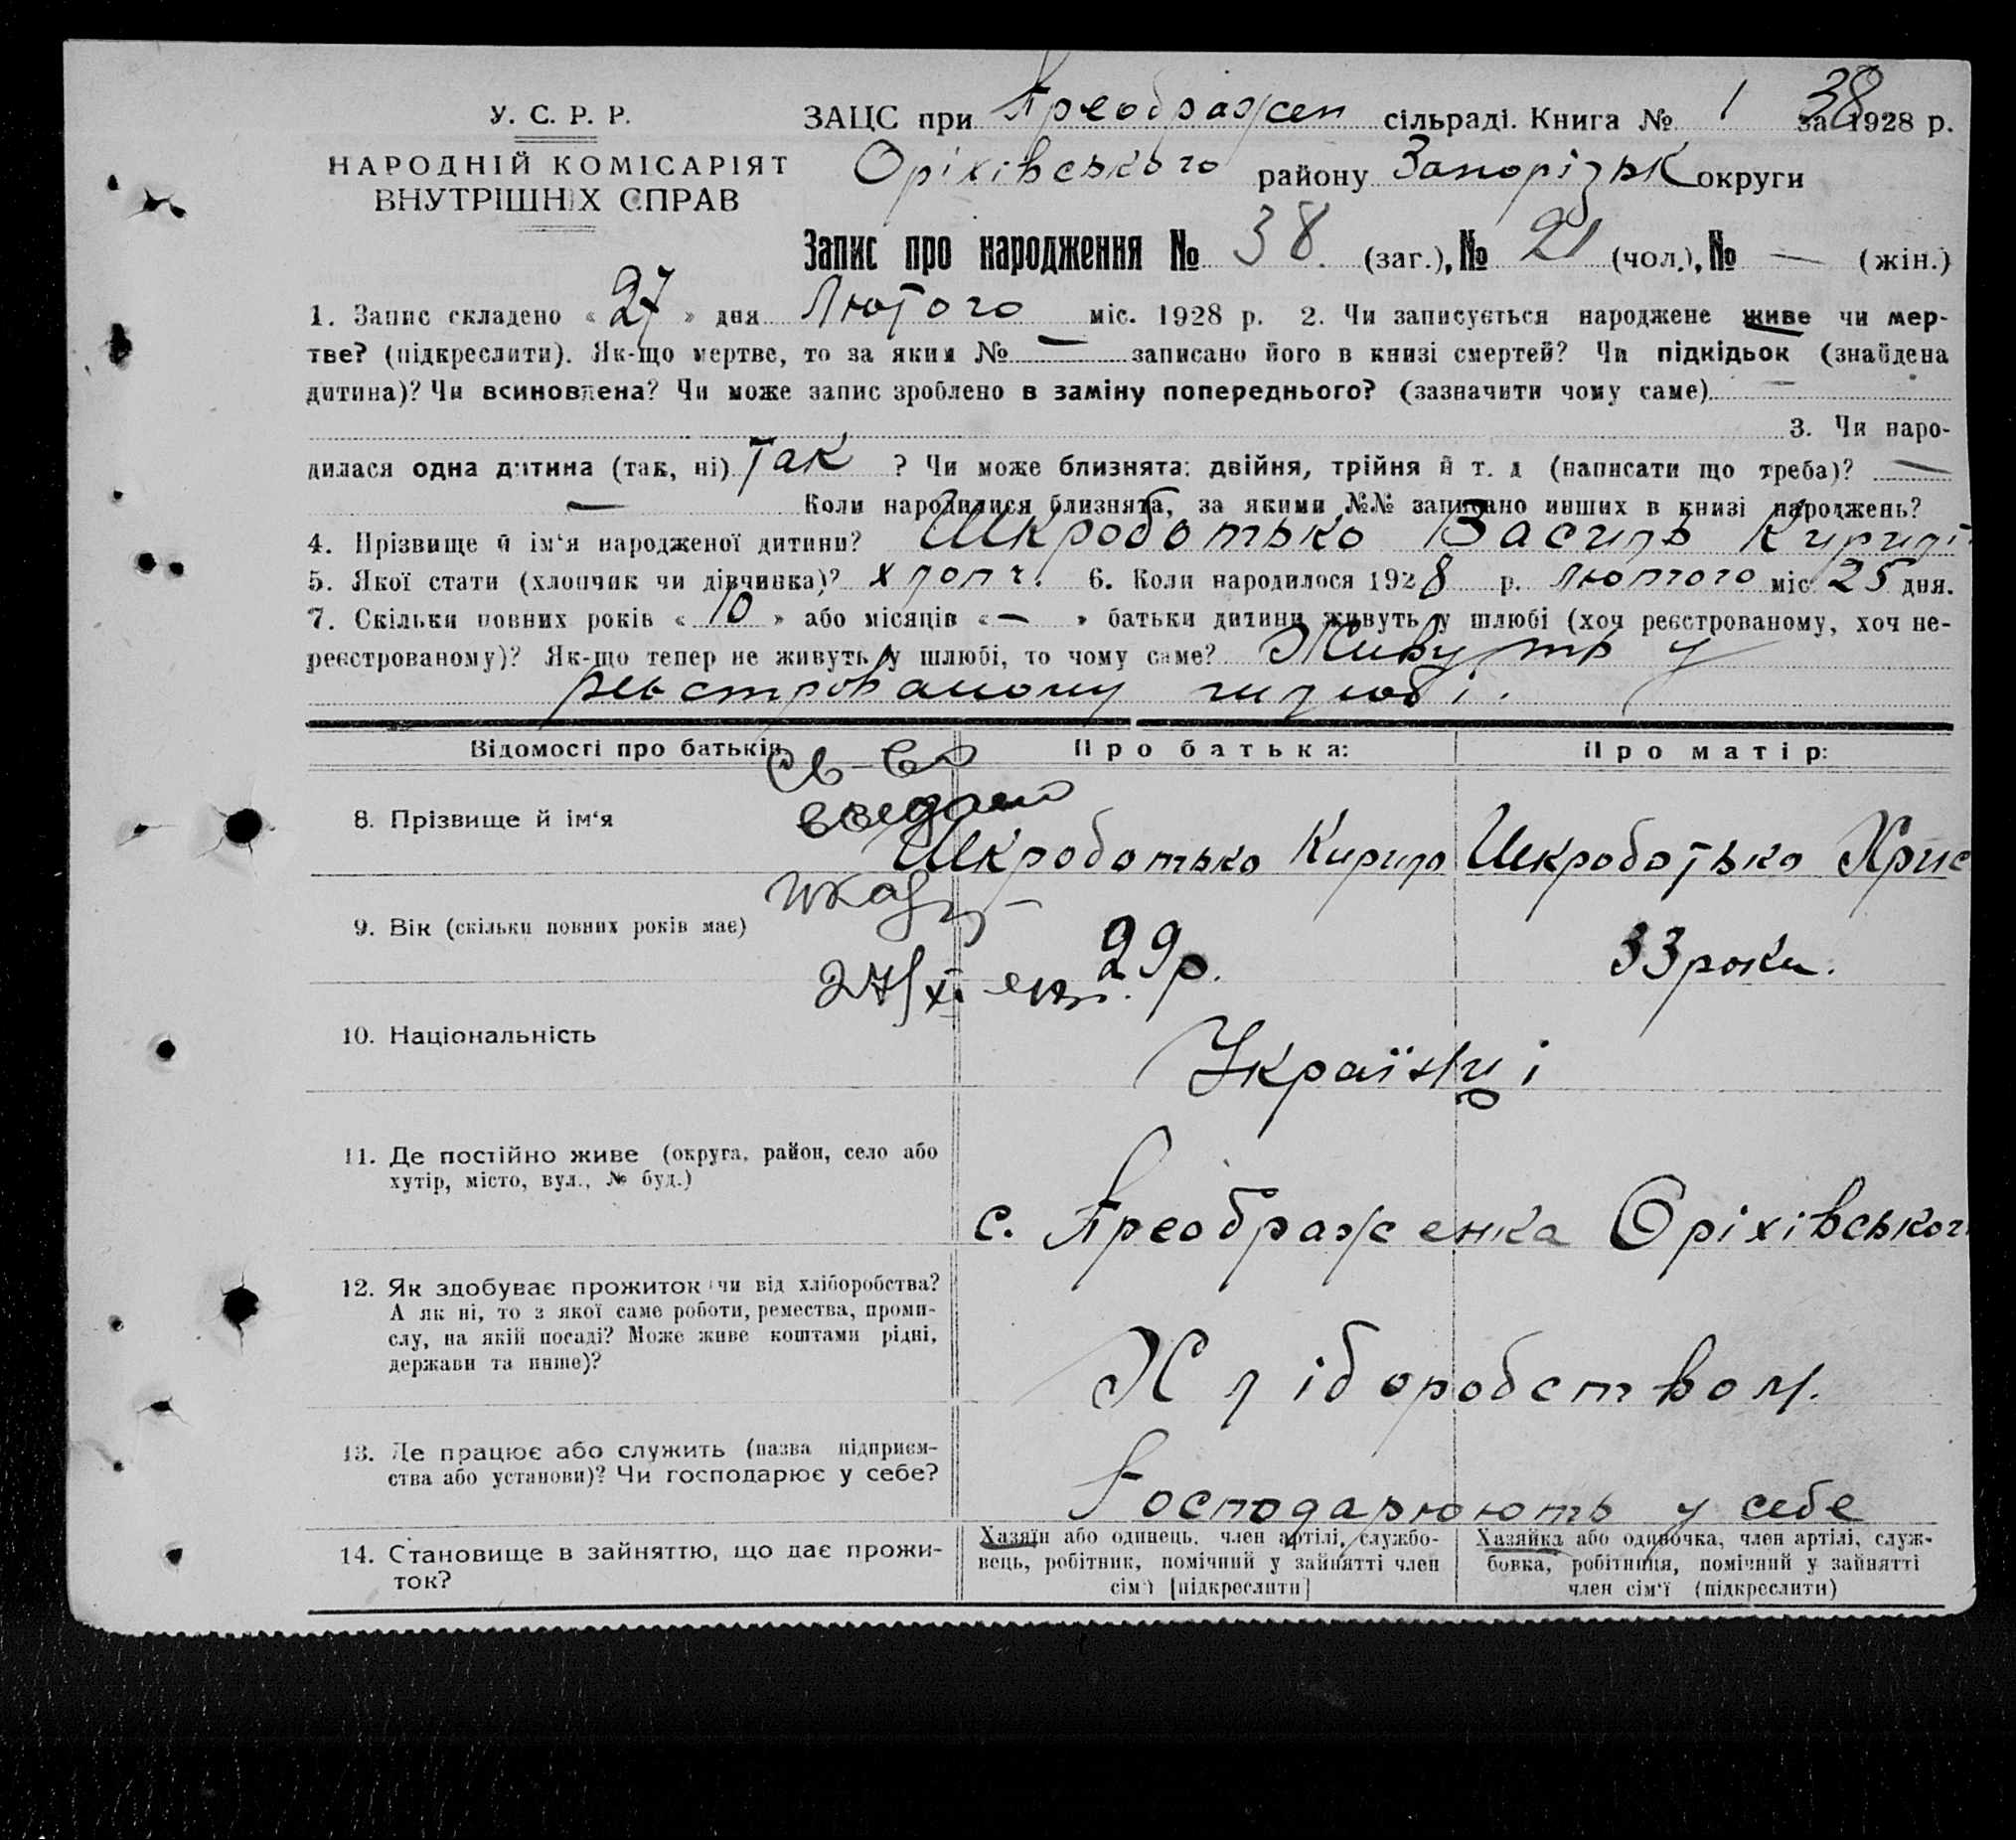 У. С. Р. Р.
НАРОДНІЙ КОМІСАРІЯТ
ВНУТРІШНІХ СПРАВ
ЗАЦС при Преображен сільраді. Книга № 1 за 1928 р.
38
Оріхівського району Запорізьк округи
Запис про народження № 38. (заг.), № 21 (чол.), № — (жін.)
1. Запис складено « 27 » дня Лютого міс. 1928 р. 2. Чи записується народжене живе чи мер-
тве? (підкреслити). Як-що мертве, то за яким № — записано його в книзі смертей? Чи підкідьок (знайдена
дитина)? Чи всиновлена? Чи може запис зроблено в заміну попереднього? (зазначити чому саме) —
3. Чи наро-
дилася одна дитина (так, ні) Так ? Чи може близнята: двійня, трійня й т. д (написати що треба)? —
— Коли народилися близнята, за якими №№ записано инших в книзі народжень?
4. Прізвище й ім‘я народженої дитини? Шкроботько Василь Кирилі
5. Якої стати (хлопчик чи дівчинка)? хлопч. 6. Коли народилося 1928 р. лютого міс 25 дня.
7. Скільки повних років « 10 » або місяців « — » батьки дитини живуть у шлюбі (хоч реєстрованому, хоч не-
реєстрованому)? Як-що тепер не живуть у шлюбі, то чому саме? Живуть у
реєстрованому шлюбі.
Відомості про батьків Про батька: Про матір:
св-во
8. Прізвище й ім‘я Шкроботько Кирило Шкроботько Хрис
9. Вік (скільки повних років має) 29 р. 33 роки.
27/XI
10. Національність Українці
11. Де постійно живе (округа, район, село або
хутір, місто, вул., № буд.)
с. Преображенка Оріхівського
12. Як здобуває прожиток (чи від хліборобства?
А як ні, то з якої саме роботи, ремества, проми-
слу, на якій посаді? Може живе коштами рідні,
держави та инше)?
Хліборобством.
13. Де працює або служить (назва підприєм-
ства або установи)? Чи господарює у себе?
Господарюють у себе
14. Становище в зайняттю, що дає прожи-
ток?
Хазяїн або одинець, член артілі, службо-
вець, робітник, помічний у зайнятті член
сім‘ї [підкреслити]
Хазяйка або одиночка, член артілі, служ-
бовка, робітниця, помічний у зайнятті
член сім‘ї (підкреслити)